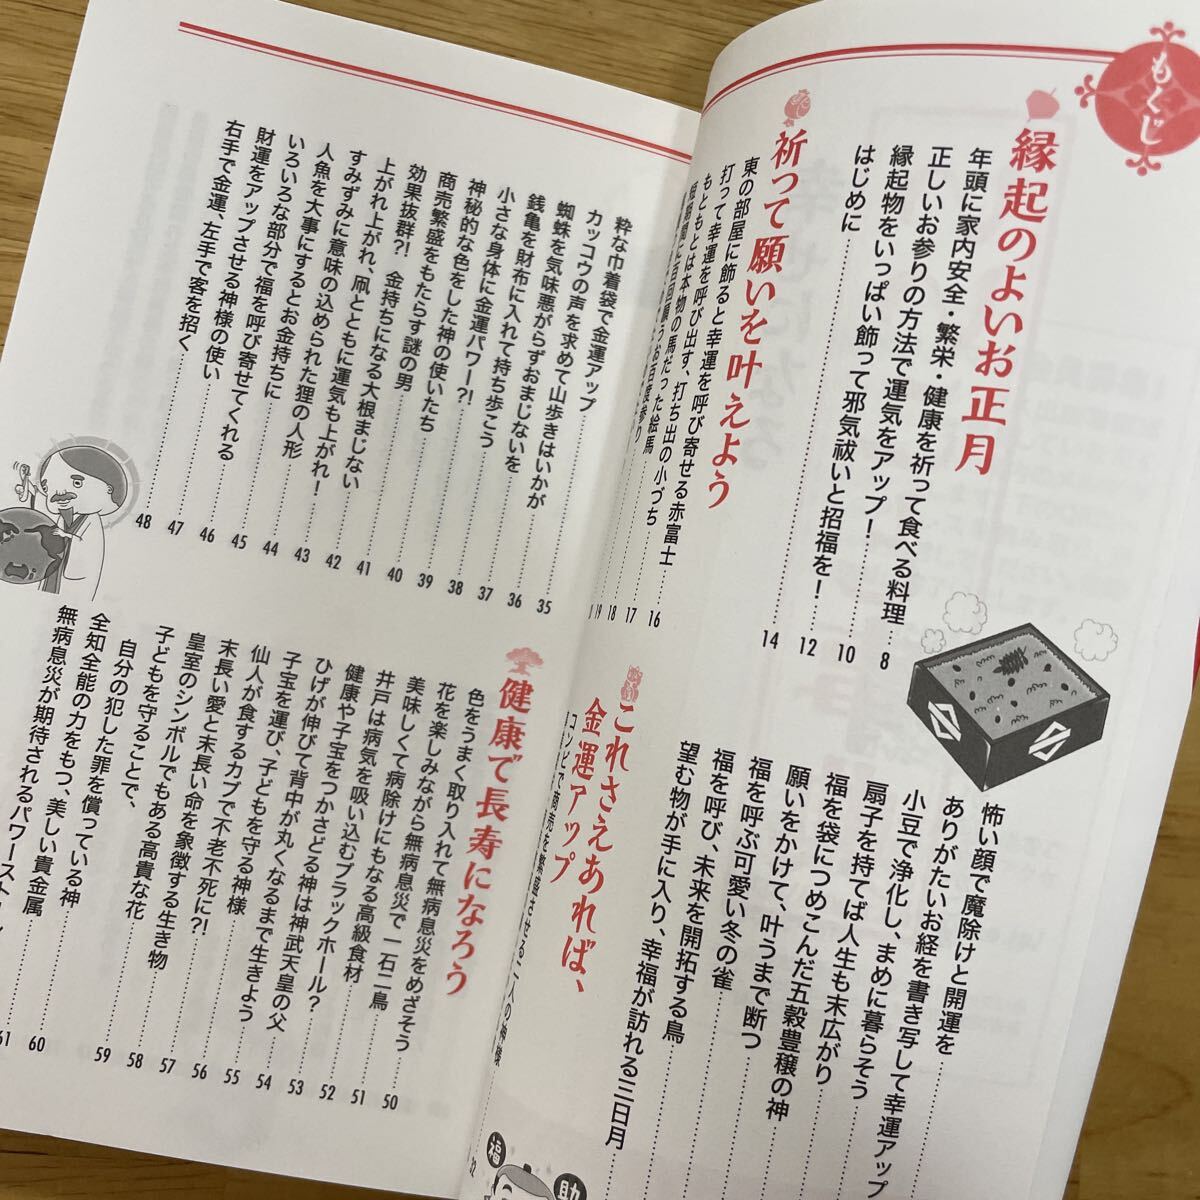 もくじ
縁起のよいお正月
年頭に家内安全・繁栄・健康を祈って食べる料理……8
正しいお参りの方法で運気をアップ！……10
縁起物をいっぱい飾って邪気祓いと招福を！……12
はじめに……14
祈って願いを叶えよう
東の部屋に飾ると幸運を呼び寄せる赤富士……16
打って幸運を呼び出す、打ち出の小づち……17
もともとは本物の馬だった絵馬……18
短期間に百回願うお百度参り……19
怖い顔で魔除けと開運を
ありがたいお経を書き写して幸運アップ
小豆で浄化し、まめに暮らそう
扇子を持てば人生も末広がり
福を袋につめこんだ五穀豊穣の神
願いをかけて、叶うまで断つ
福を呼ぶ可愛い冬の雀
福を呼び、未来を開拓する鳥
望む物が手に入り、幸福が訪れる三日月
これさえあれば、
金運アップ
コンビで商売を繁盛させる二人の神様
福
助
粋な巾着袋で金運アップ……35
カッコウの声を求めて山歩きはいかが……36
蜘蛛を気味悪がらずおまじないを……37
銭亀を財布に入れて持ち歩こう……38
小さな身体に金運パワー？！……39
神秘的な色をした神の使いたち……40
商売繁盛をもたらす謎の男……41
効果抜群？！　金持ちになる大根まじない……42
上がれ上がれ、凧とともに運気も上がれ！……43
すみずみに意味の込められた狸の人形……44
人魚を大事にするとお金持ちに……45
いろいろな部分で福を呼び寄せてくれる……46
財運をアップさせる神様の使い……47
右手で金運、左手で客を招く……48
健康で長寿になろう
色をうまく取り入れて無病息災をめざそう……50
花を楽しみながら無病息災で一石二鳥……51
美味しくて病除けにもなる高級食材……52
井戸は病気を吸い込むブラックホール？……53
健康や子宝をつかさどる神は神武天皇の父……54
ひげが伸びて背中が丸くなるまで生きよう……55
子宝を運び、子どもを守る神様……56
仙人が食するカブで不老不死に？！……57
末長い愛と末長い命を象徴する生き物……58
皇室のシンボルでもある高貴な花……59
子どもを守ることで、
自分の犯した罪を償っている神……60
全知全能の力をもつ、美しい貴金属……61
無病息災が期待されるパワーストーン